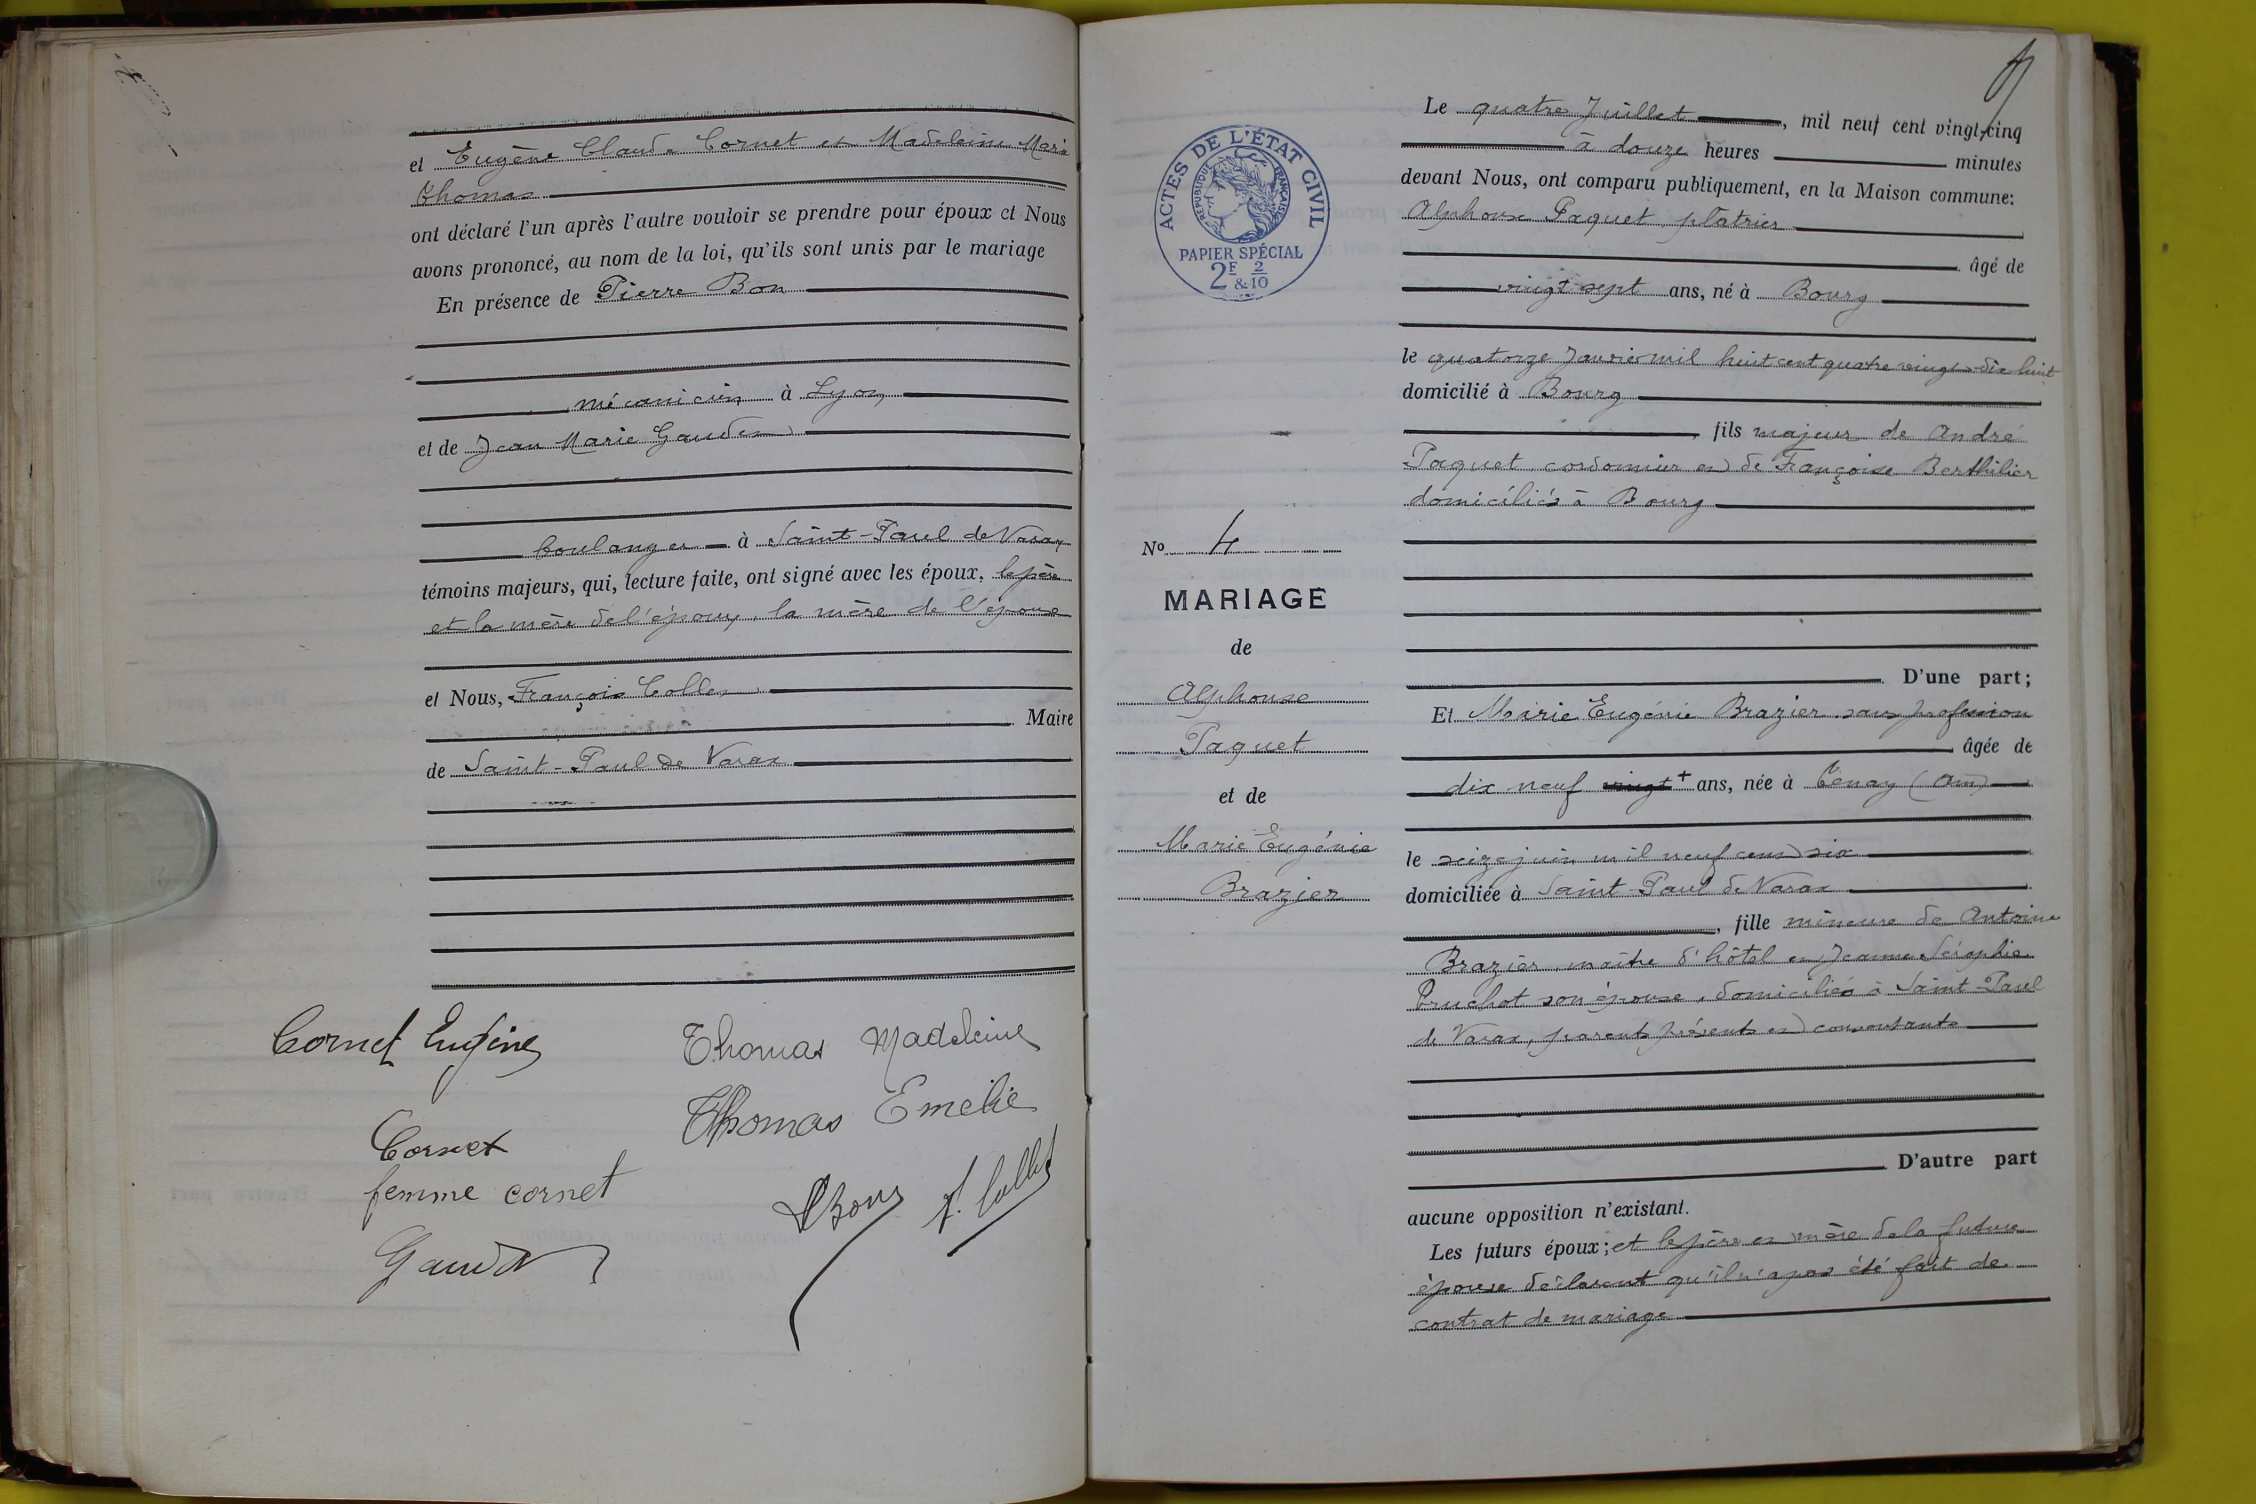 et Eugène Claude Cornet et Madeleine Marie
Thomas
ont déclaré l'un après l'autre vouloir se prendre pour époux et Nous
avons prononcé, au nom de la loi, qu'ils sont unis par le mariage
En présence de Pierre Bon
mécanicien à Lyon
et de Jean Marie Gaudet
boulanger à Saint-Paul de Varax
témoins majeurs, qui, lecture faite, ont signé avec les époux, le père
et la mère de l'époux, la mère de l'épouse
et Nous, François Collet
Maire
de Saint-Paul de Varax
Cornet Eugène
Thomas Madeleine
Thomas Emelie
Cornet
femme cornet
PBon
F. Collet
Gaudet
ACTES DE L'ÉTAT CIVIL
RÉPUBLIQUE FRANÇAISE
PAPIER SPÉCIAL
2F & 2/10
No 4
MARIAGE
de
Alphonse
Paquet
et de
Marie Eugénie
Brazier
Le quatre Juillet, mil neuf cent vingt-cinq
à douze heures minutes
devant Nous, ont comparu publiquement, en la Maison commune:
Alphonse Paquet plâtrier
âgé de
vingt sept ans, né à Bourg
le quatorze Janvier mil huit cent quatre vingt-dix huit
domicilié à Bourg
fils majeur de André
Paquet cordonnier et de Françoise Berthilier
domiciliés à Bourg
D'une part;
Et Marie Eugénie Brazier sans profession
âgée de
dix neuf vingt + ans, née à Tenay (Ain)
le seize juin mil neuf cent six
domiciliée à Saint-Paul de Varax
, fille mineure de Antoine
Brazier, maître d'hôtel et Jeanne Séraphie
Pruchot son épouse, domiciliés à Saint-Paul
de Varax, parents présents et consentants
D'autre part
aucune opposition n'existant.
Les futurs époux; et le père et mère de la future
épouse déclarent qu'il n'a pas été fait de
contrat de mariage